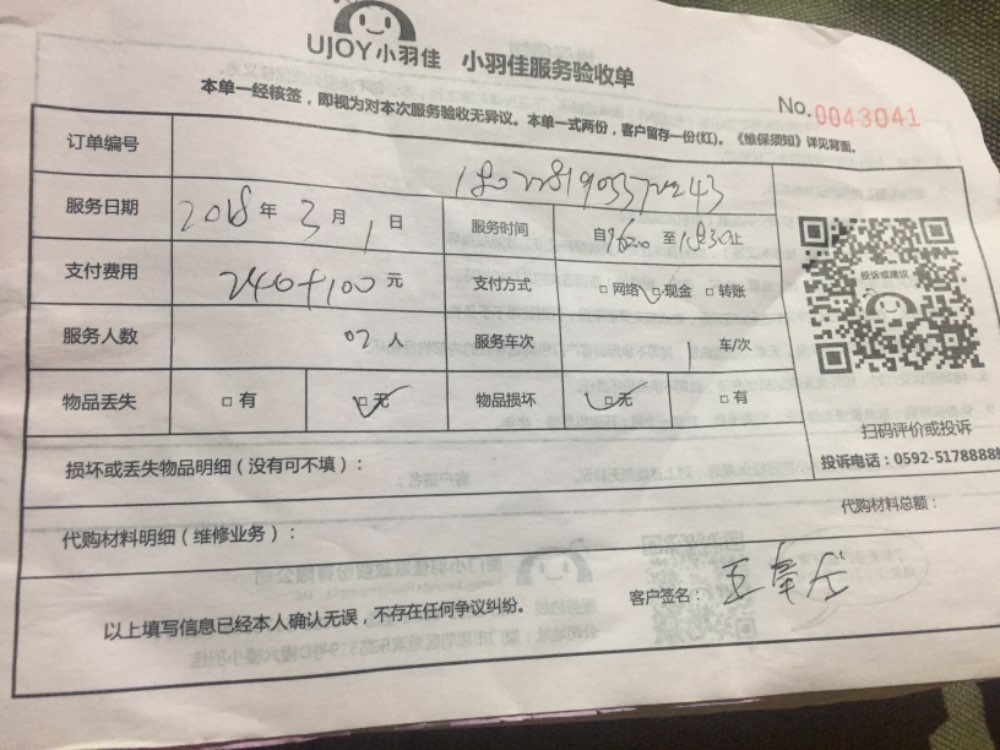 UJOY小羽佳 小羽佳服务验收单
No.0043041
本单一经核签，即视为对本次服务验收无异议。本单一式两份，客户留存一份(红)。《维保须知》详见背面。
订单编号
服务日期 2018年3月1日 服务时间 自 至 止
支付费用 240+100元 支付方式 □网络 □现金 □转账
服务人数 02人 服务车次 1 车/次
物品丢失 □有 □无 物品损坏 □无 □有
投诉或建议
扫码评价或投诉
投诉电话：0592-5178888
损坏或丢失物品明细（没有可不填）：
代购材料明细（维修业务）：
代购材料总额：
以上填写信息已经本人确认无误，不存在任何争议纠纷。
客户签名：